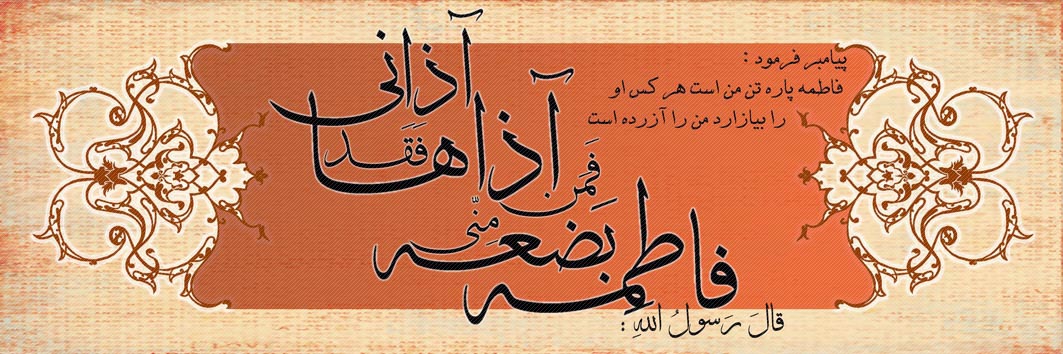 پیامبر فرمود :
فاطمه پاره تن من است هر کس او
را بیازارد من را آزرده است
قالَ رَسولُ اللهِ :
فاطمه
بضعه منّی
فَمَن آذاها
فَقَد آذانی